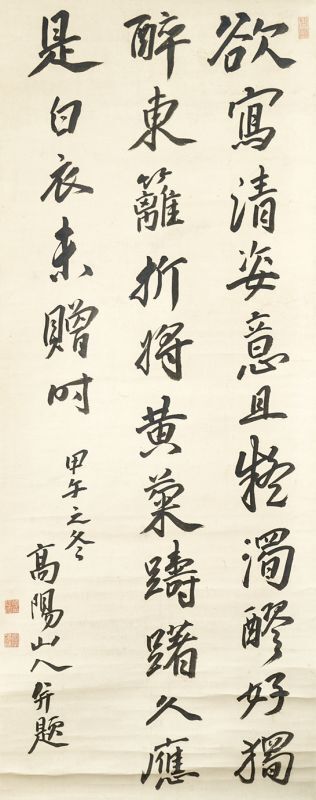 欲寫清姿意且濁醪好獨
醉東籬折將黃菊躊躇久應
是白衣未贈時
甲午之冬
高陽山人并題